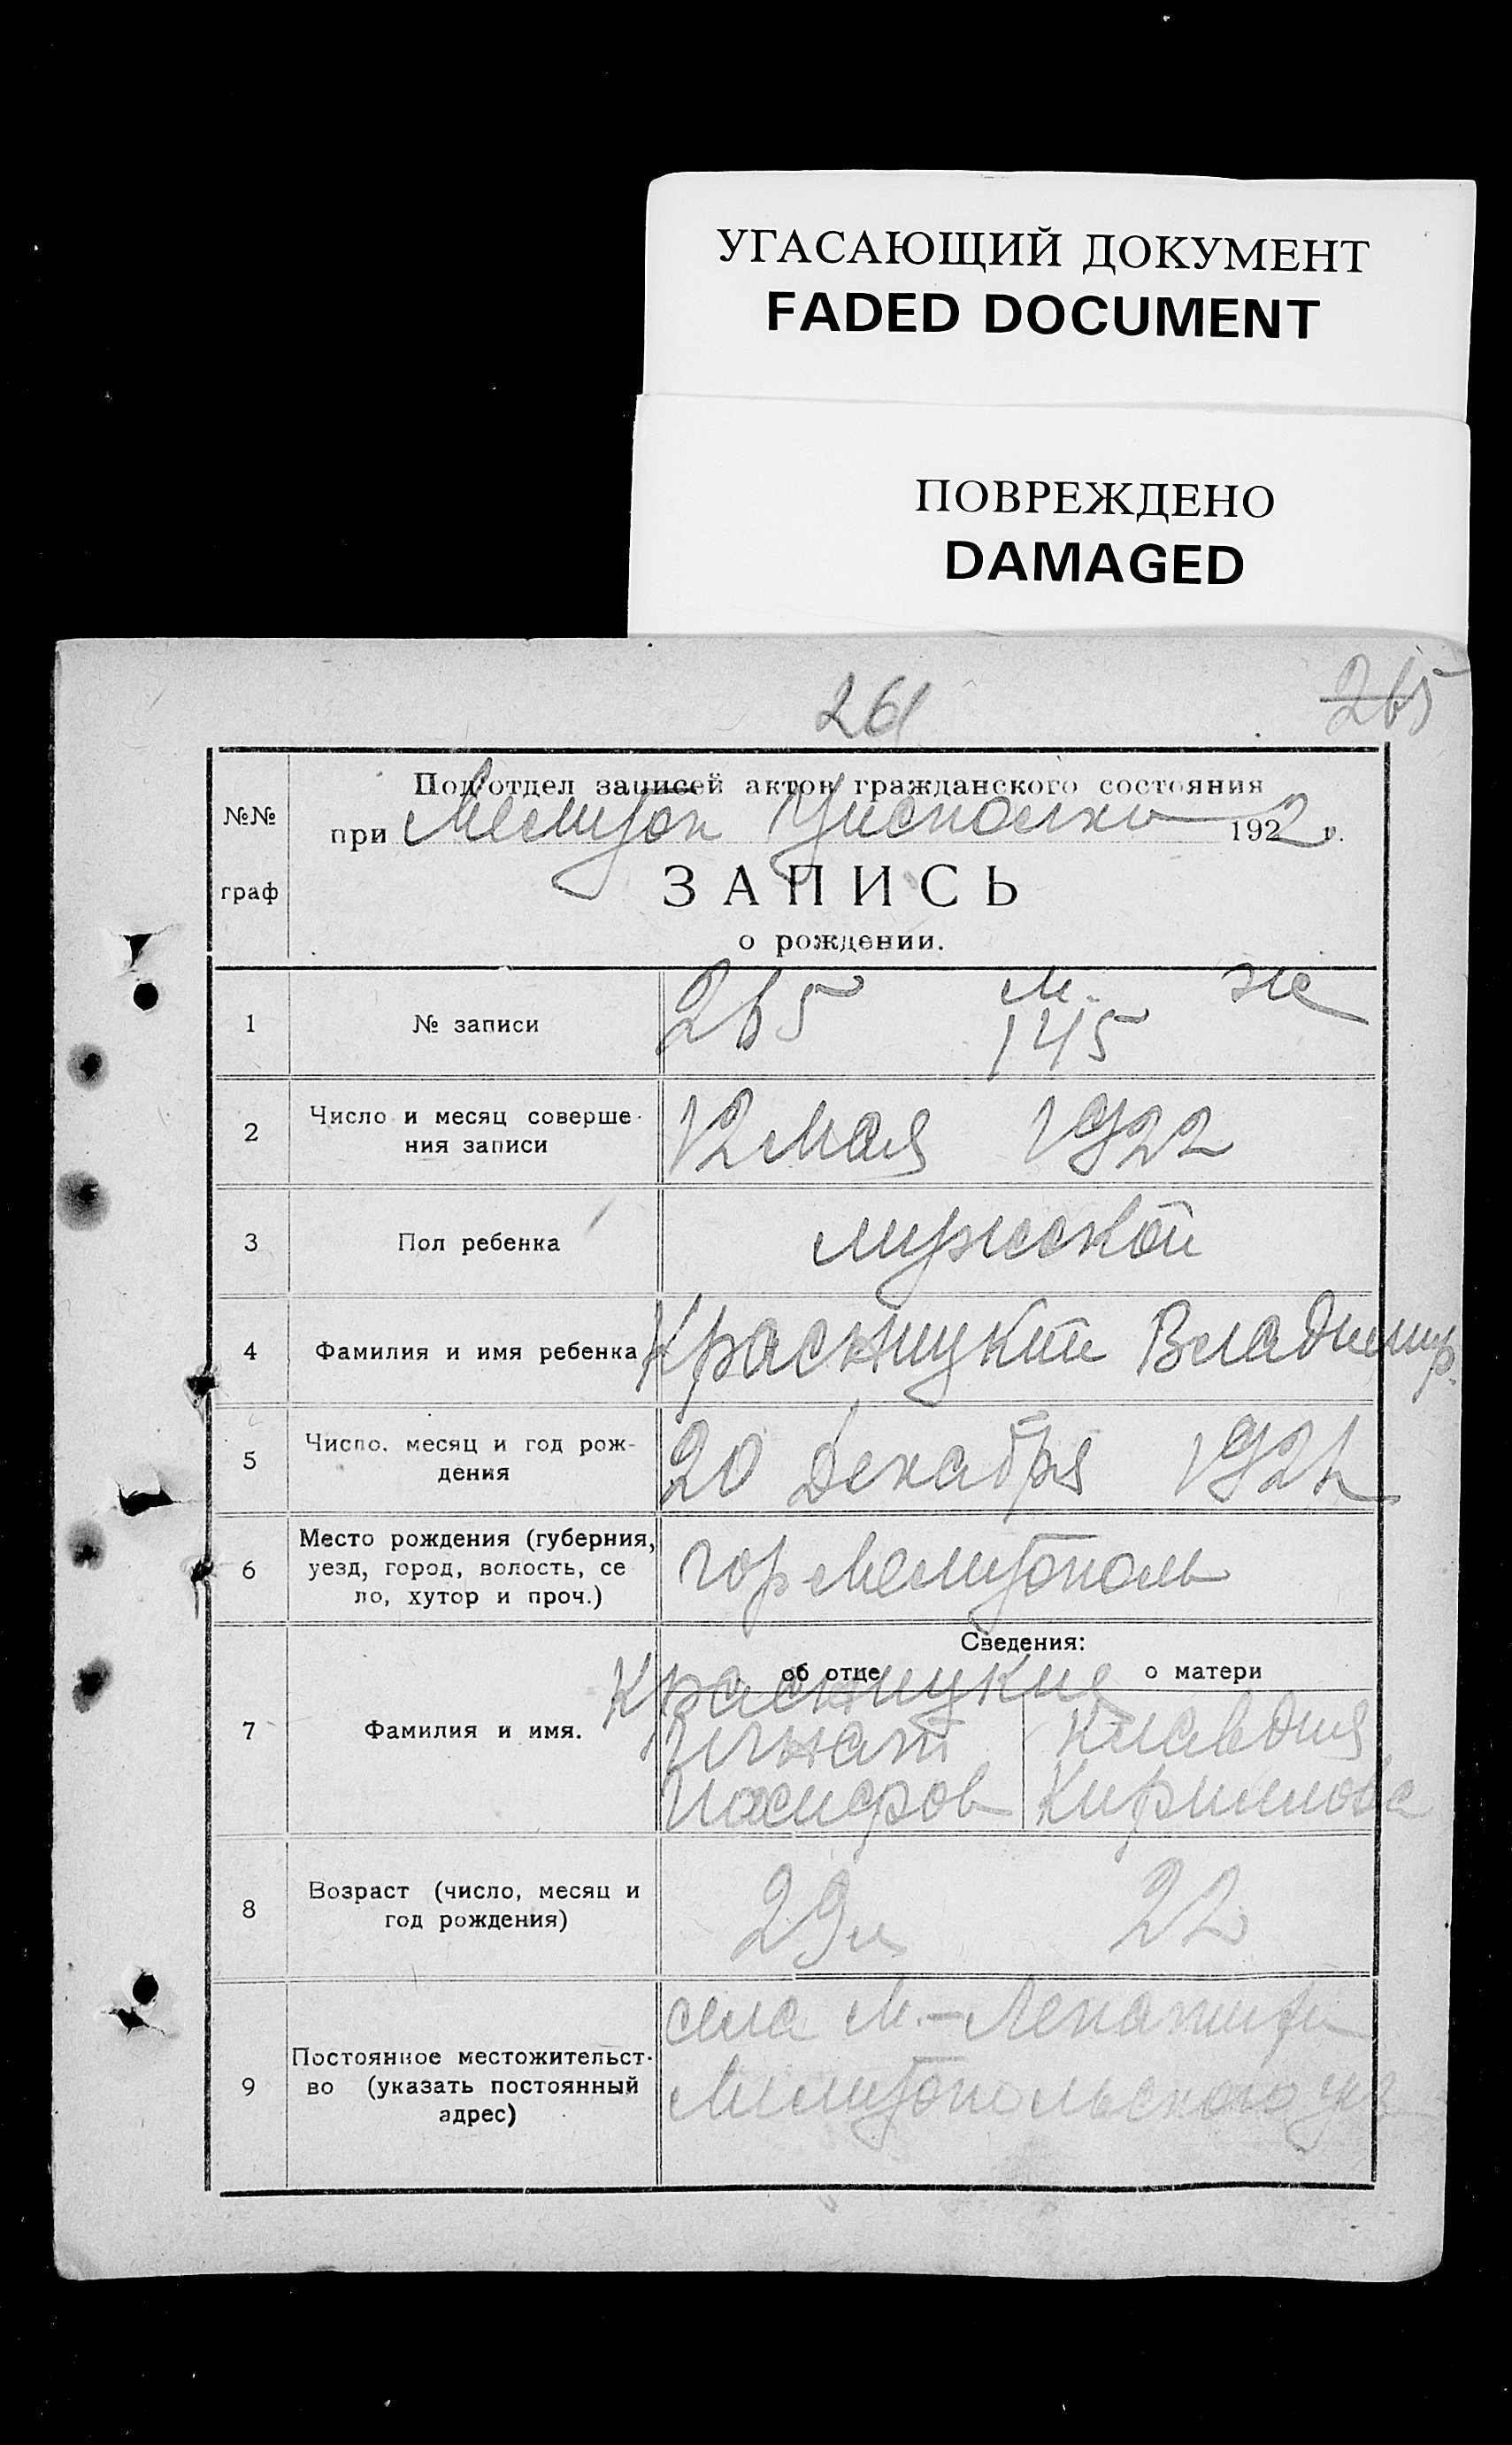 УГАСАЮЩИЙ ДОКУМЕНТ
FADED DOCUMENT
ПОВРЕЖДЕНО
DAMAGED
261
265
№№
граф
Под'отдел записей актов гражданского состояния
при Мелитоп Уисполко 1922 г.
ЗАПИСЬ
о рождении.
1 № записи 265 м. 145 же
2 Число и месяц соверше-
ния записи 12 Мая 1922
3 Пол ребенка мужской
4 Фамилия и имя ребенка Красницкий Владимир.
5 Число. месяц и год рож-
дения 20 Декабря 1921
6 Место рождения (губерния,
уезд, город, волость, се
ло, хутор и проч.) гор Мелитополь
Сведения:
об отце о матери
Красницкие
7 Фамилия и имя. Игнат Клавдия
Кириллова
8 Возраст (число, месяц и
год рождения) 29 л 22
9 Постоянное местожительст-
во (указать постоянный
адрес) села М.-Лепатиха
Мелитопольского уез